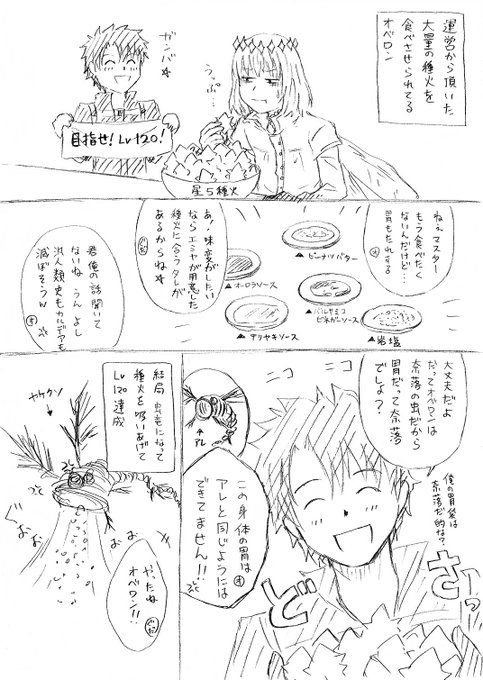 運営から頂いた
大量の種火を
食べさせられてる
オベロン
うっぷ…
ガンバ☆
目指せ!Lv120!
星5種火
ねぇマスター
もう食べたく
ないんだけど…
胃もたれする
オ
ピーナツバター
オーロラソース
バルサミコ
ビネガーソース
テリヤキソース
岩塩
あ!味変がしたい
ならエミヤが用意した
種火に合うタレが
あるからね☆
ぐだ
君俺の話聞いて
ないね うん よし
汎人類史もカルデアも
滅ぼそうw
オ
大丈夫だよ
だってオベロンは
奈落の虫だから
胃だって奈落
でしょ?
俺の胃袋は
奈落だ的な?
ニコ
ニコ
どさっ
アレ
この身体の胃は
アレと同じようには
できてません!!
オ
結局 虫竜になって
種火を吸いあげて
Lv120達成
ヤケクソ
おおおお
やったね
オベロン!!
ぐだ